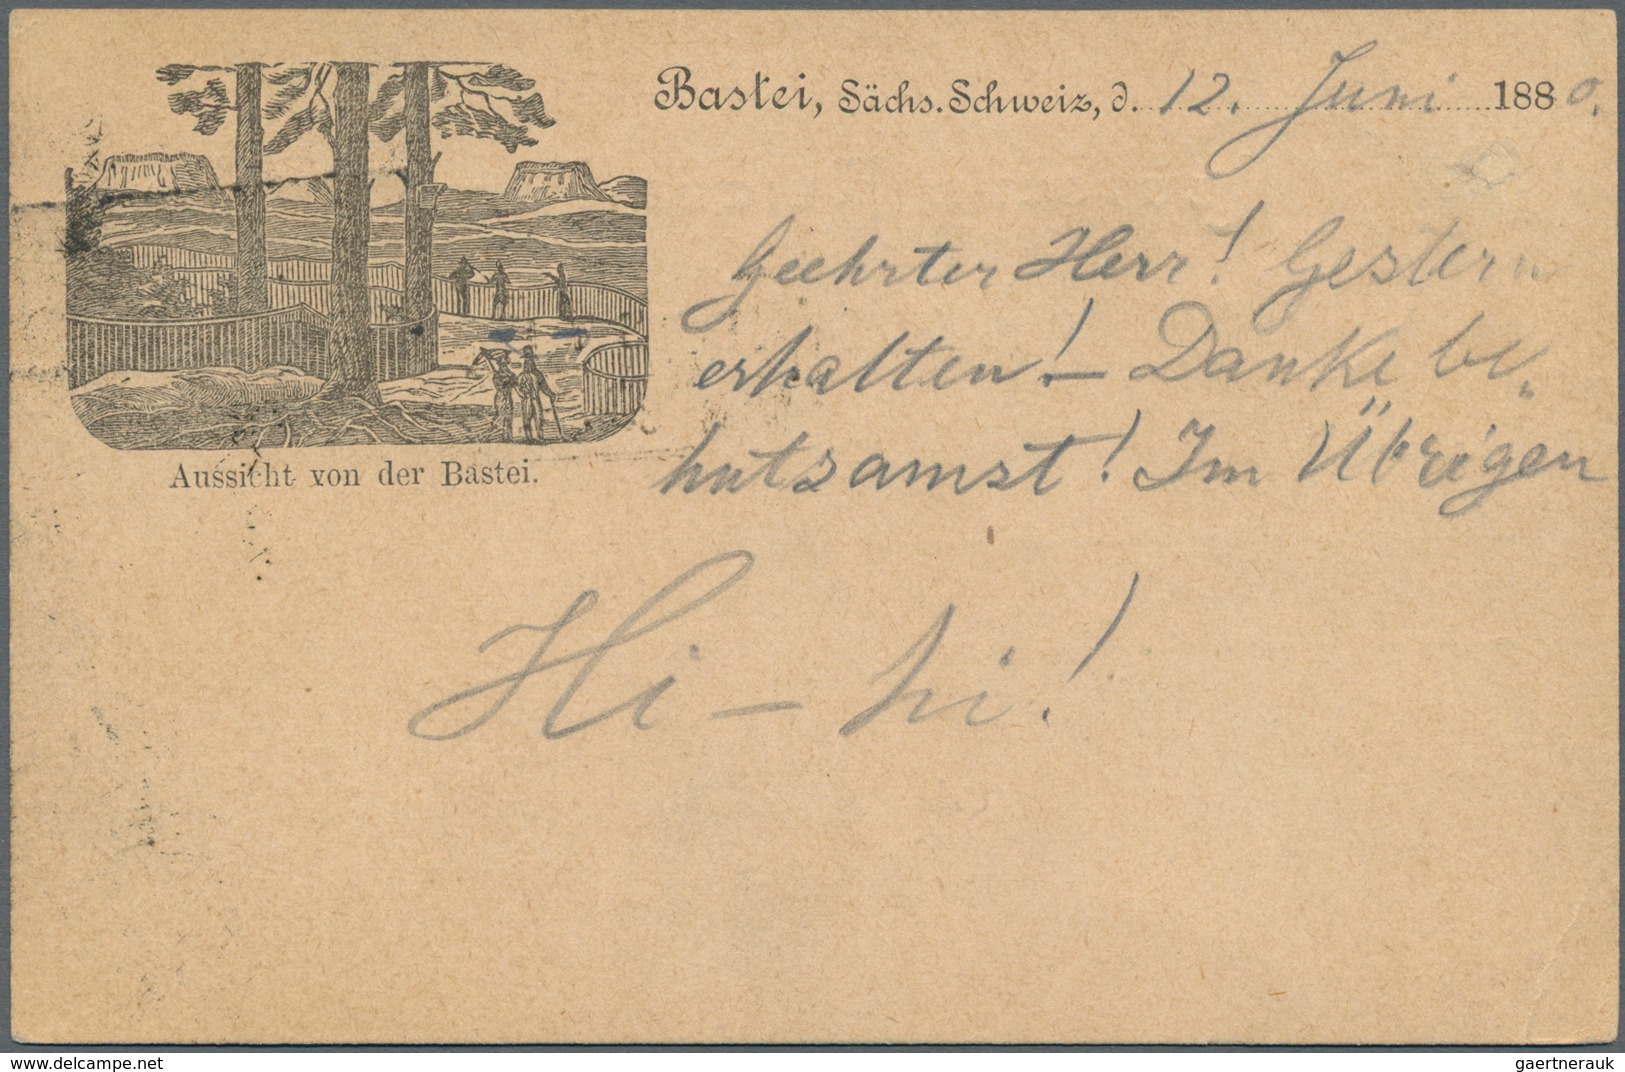 Bastei, Sächs. Schweiz, d. 12. Juni 1880.
Geehrter Herr! Gestern
erhalten! – Danke be„
hutsamst! Im Übrigen
Hi – hi!
Aussicht von der Bastei.
delcampe.net
gaertnerauk